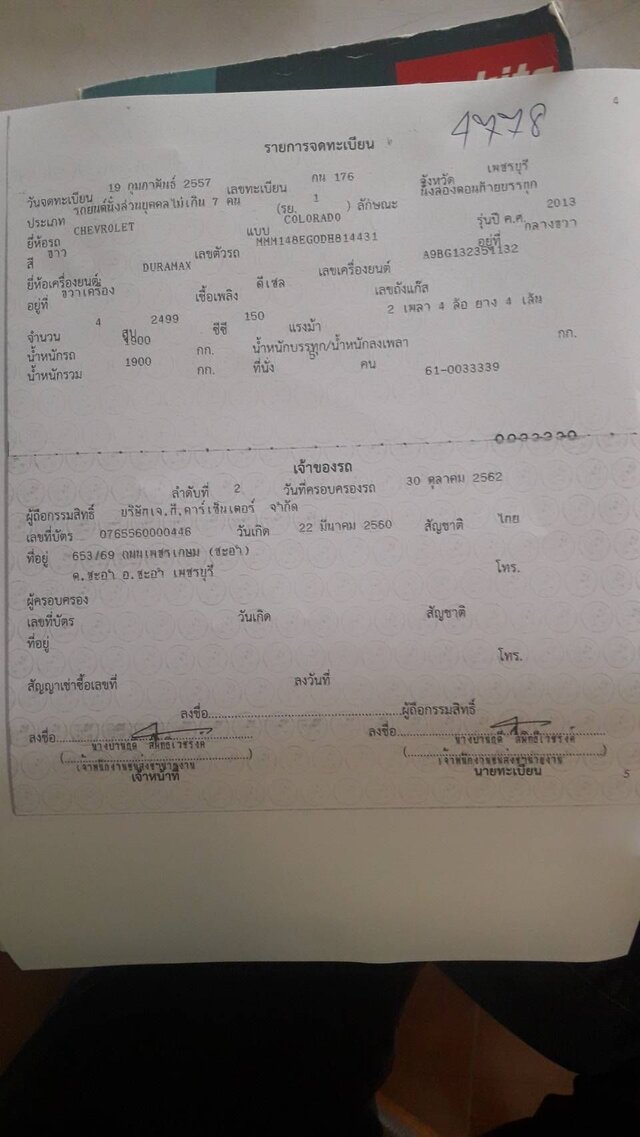 4
4778
รายการจดทะเบียน
วันจดทะเบียน 19 กุมภาพันธ์ 2557 เลขทะเบียน กน 176 จังหวัด เพชรบุรี
ประเภท รถยนต์นั่งส่วนบุคคลไม่เกิน 7 คน (รย. 1 ) ลักษณะ นั่งสองตอนท้ายบรรทุก
ยี่ห้อรถ CHEVROLET แบบ COLORADO รุ่นปี ค.ศ. 2013
สี ขาว เลขตัวรถ MMM148EGODH814431 อยู่ที่ กลางขวา
ยี่ห้อเครื่องยนต์ DURAMAX เลขเครื่องยนต์ A9BG132351132
อยู่ที่ ขวาเครื่อง เชื้อเพลิง ดีเซล เลขถังแก๊ส
จำนวน 4 สูบ 2499 ซีซี 150 แรงม้า 2 เพลา 4 ล้อ ยาง 4 เส้น
น้ำหนักรถ 1900 กก. น้ำหนักบรรทุก/น้ำหนักลงเพลา กก.
น้ำหนักรวม 1900 กก. ที่นั่ง 5 คน 61-0033339
เจ้าของรถ
ลำดับที่ 2 วันที่ครอบครองรถ 30 ตุลาคม 2562
ผู้ถือกรรมสิทธิ์ บริษัทเจ.ที.คาร์เซ็นเตอร์ จำกัด
เลขที่บัตร 0765560000446 วันเกิด 22 มีนาคม 2560 สัญชาติ ไทย
ที่อยู่ 653/69 ถนนเพชรเกษม (ชะอำ)
ต.ชะอำ อ.ชะอำ เพชรบุรี โทร.
ผู้ครอบครอง
เลขที่บัตร วันเกิด สัญชาติ
ที่อยู่
โทร.
สัญญาเช่าซื้อเลขที่ ลงวันที่
ลงชื่อ ผู้ถือกรรมสิทธิ์
ลงชื่อ ลงชื่อ
เจ้าหน้าที่ นายทะเบียน
5